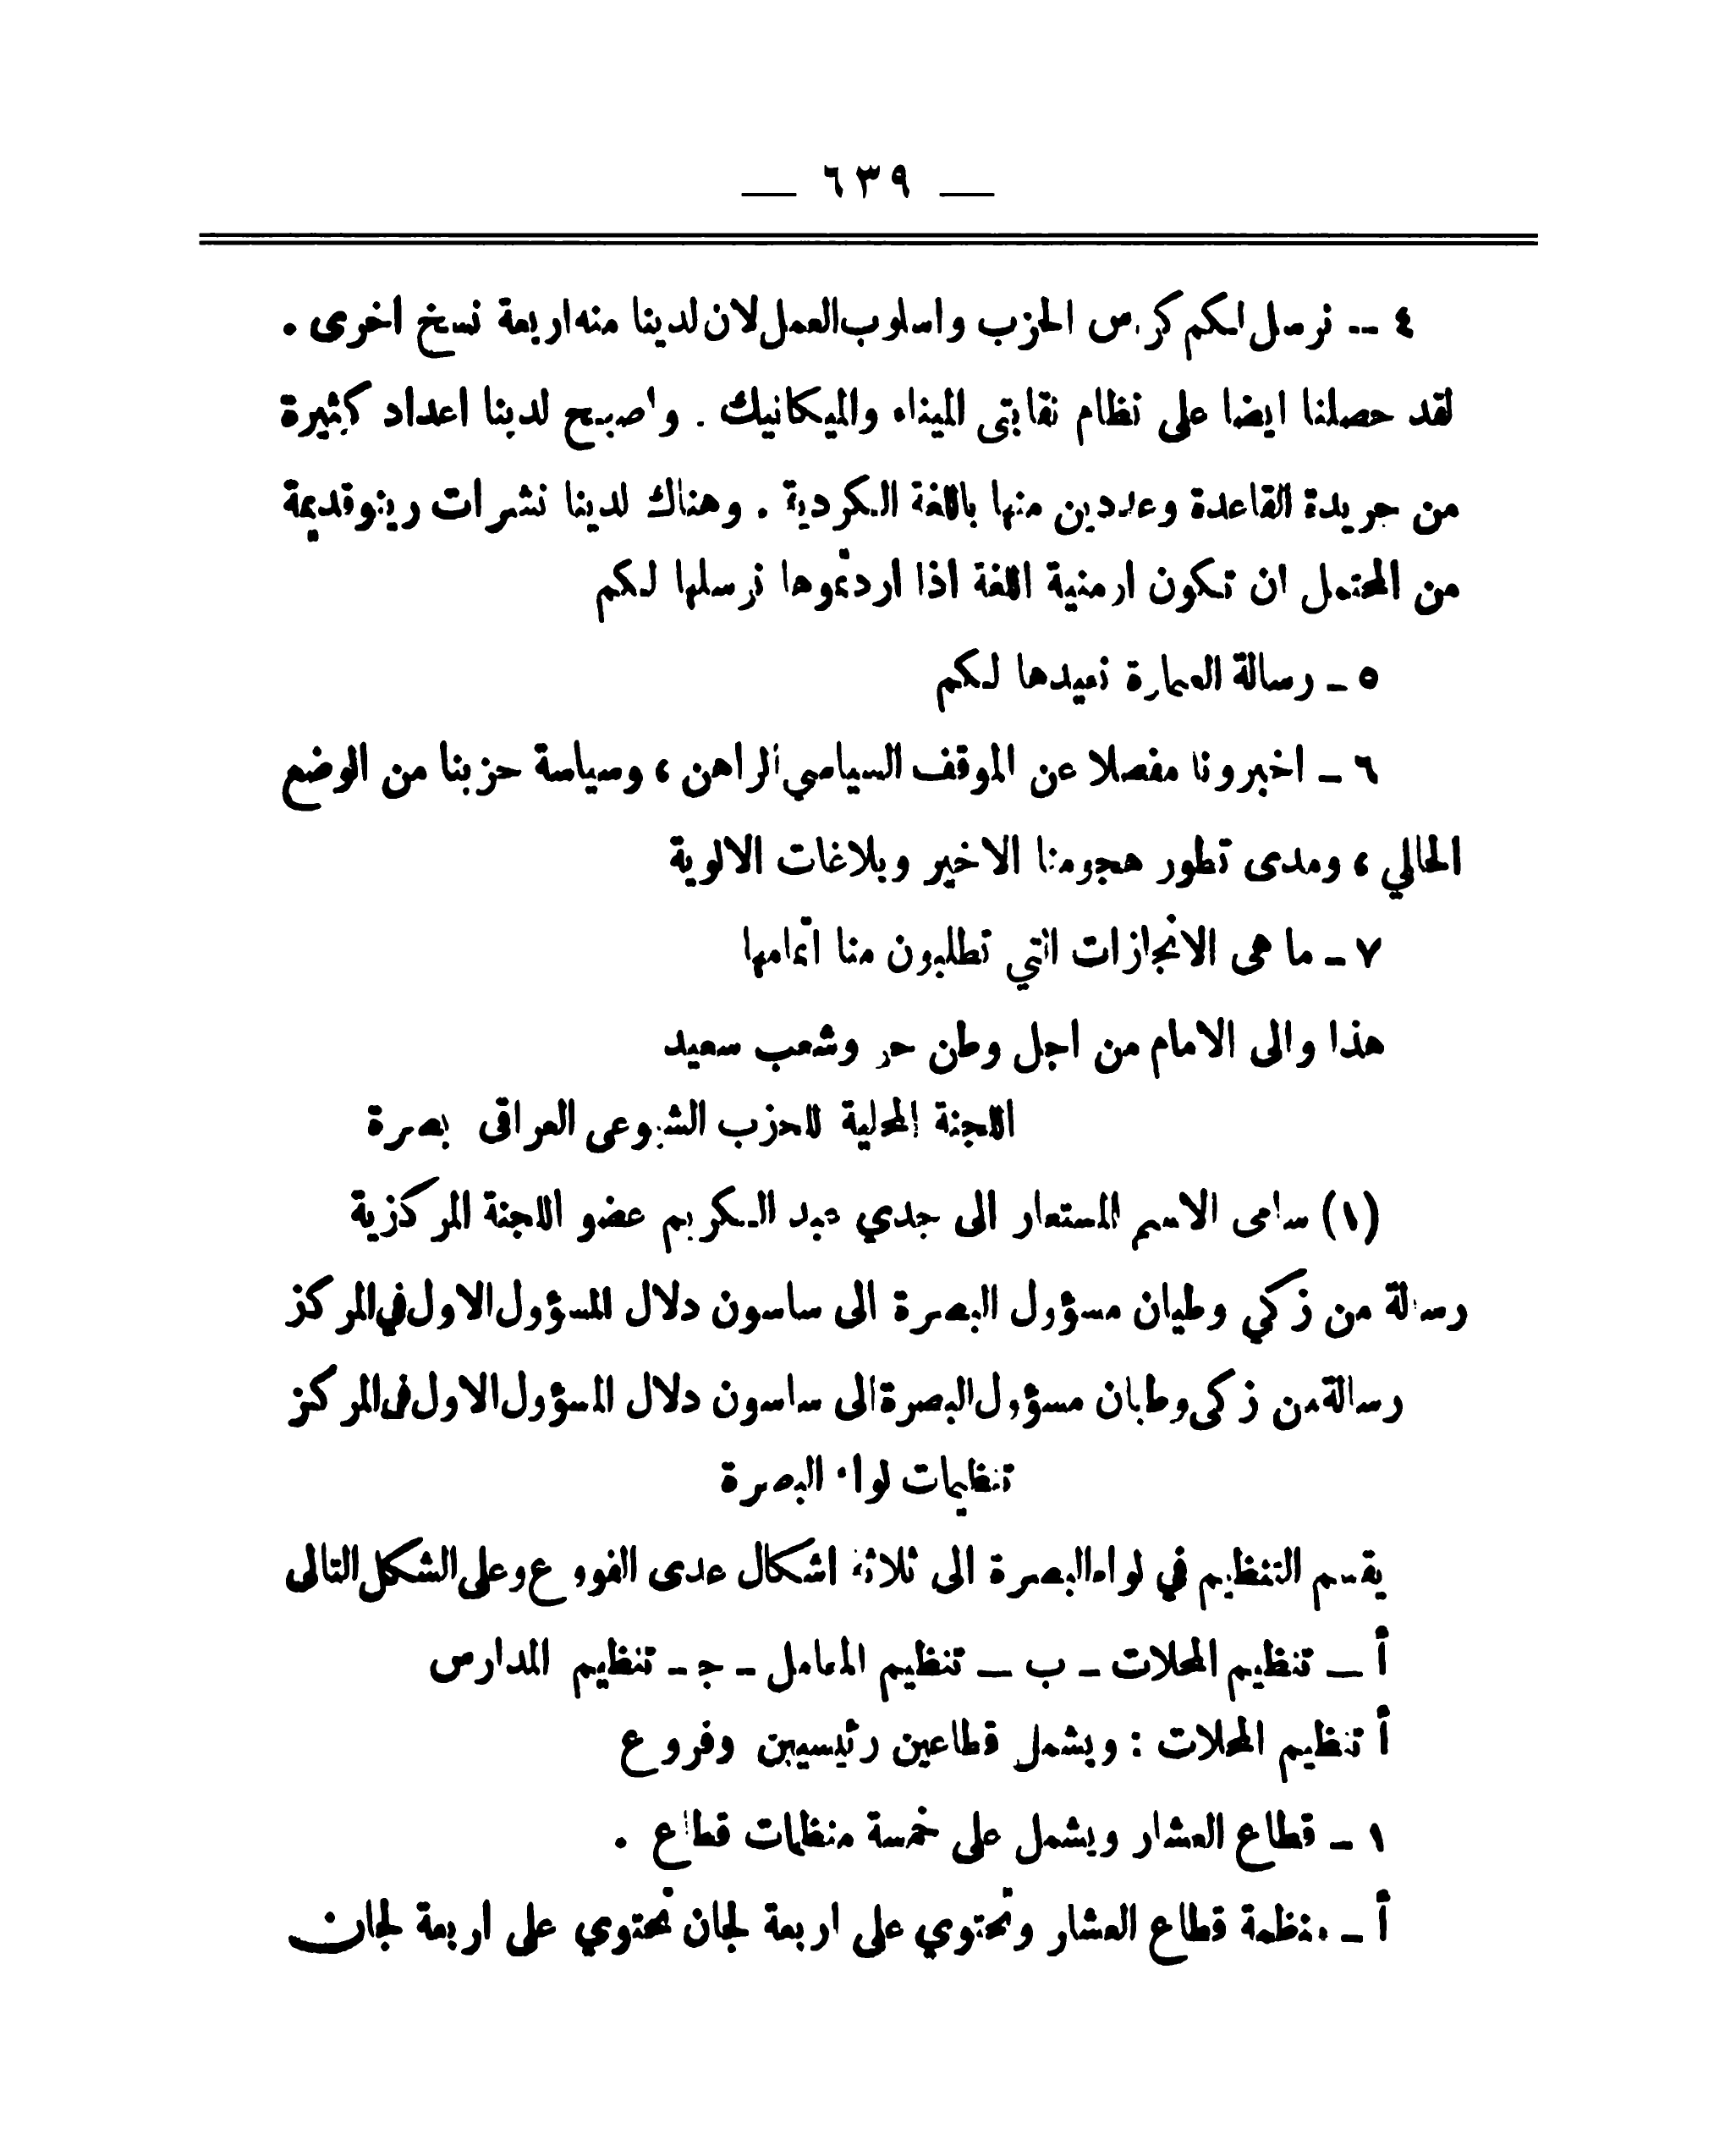 — ٦٣٩ —
٤ — نرسل لكم كراس الحزب واسلوب العمل لان لدينا منه اربعة نسخ اخرى .
لقد حصلنا ايضا على نظام نقابتى الميناء والميكانيك . واصبح لدينا اعداد كثيرة
من جريدة القاعدة وعددين منها باللغة الكردية . وهناك لدينا نشرات رينو قديمة
من المحتمل ان تكون ارمنية اللغة اذا اردتموها نرسلها لكم
٥ — رسالة العمارة نعيدها لكم
٦ — اخبرونا مفصلا عن الموقف السياسي الراهن ، وسياسة حزبنا من الوضع
الحالي ، ومدى تطور هجومنا الاخير وبلاغات الالوية
٧ — ما هى الانجازات التي تطلبون منا اتمامها
هذا والى الامام من اجل وطن حر وشعب سعيد
اللجنة المحلية للحزب الشيوعى العراقى بصرة
(١) سامى الاسم المستعار الى جدي عبد الكريم عضو اللجنة المركزية
رسالة من زكي وطبان مسؤول البصرة الى ساسون دلال المسؤول الاول في المركز
رسالة من زكى وطبان مسؤول البصرة الى ساسون دلال المسؤول الاول فى المركز
تنظيمات لواء البصرة
يقسم التنظيم في لواء البصرة الى ثلاثة اشكال عدى الفروع وعلى الشكل التالى
أ — تنظيم المحلات — ب — تنظيم المعامل — ج — تنظيم المدارس
أ تنظيم المحلات : ويشمل قطاعين رئيسيين وفروع
١ — قطاع العشار ويشمل على خمسة منظمات قطاع .
أ — منظمة قطاع العشار وتحتوي على اربعة لجان تحتوي على اربعة لجان